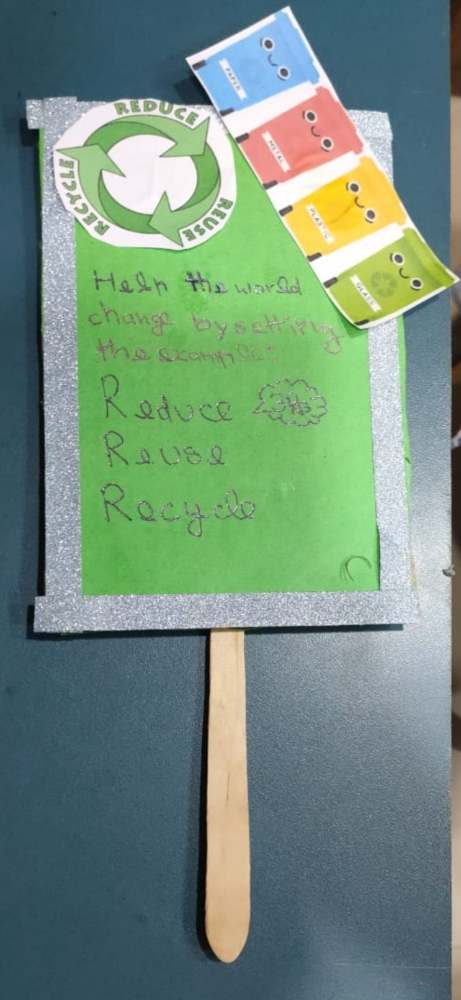 REDUCE
REUSE
RECYCLE
PAPER
METAL
PLASTIC
GLASS
Help the world
change by setting
the example:
Reduce
Reuse
Recycle